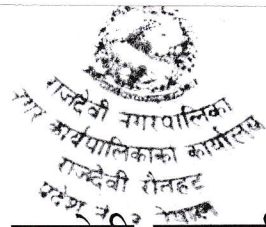 राजदेवी नगरपालिका
नगर कार्यपालिकाको कार्यालय
राजदेवी रौतहट
प्रदेश नं. २ नेपाल